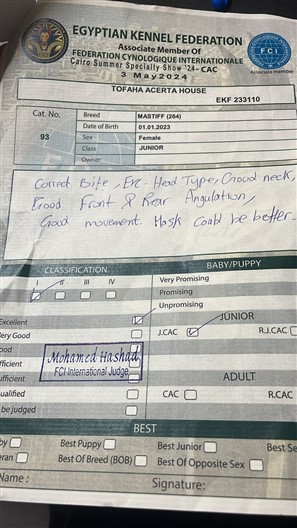 EGYPTIAN KENNEL FEDERATION
Associate Member Of
FEDERATION CYNOLOGIQUE INTERNATIONALE
Cairo Summer Specialty Show '24- CAC
3 May 2024
FCI
Associate member
TOFAHA ACERTA HOUSE
EKF 233110
Cat. No. Breed MASTIFF (264)
Date of Birth 01.01.2023
93 Sex Female
Class JUNIOR
Owner
Correct Bite, Exc- Head Type, Good neck,
Good Front & Rear Angulation,
Good movement. Mask Could be better.
CLASSIFICATION BABY/PUPPY
I II III IV Very Promising
Promising
Unpromising
Excellent JUNIOR
Very Good J.CAC R.J.CAC
ood
fficient
ufficient ADULT
ualified CAC R.CAC
be judged
Mohamed Hashad
FCI International Judge
BEST
by Best Puppy Best Junior Best Se
eran Best Of Breed (BOB) Best Of Opposite Sex
Name : Signature: